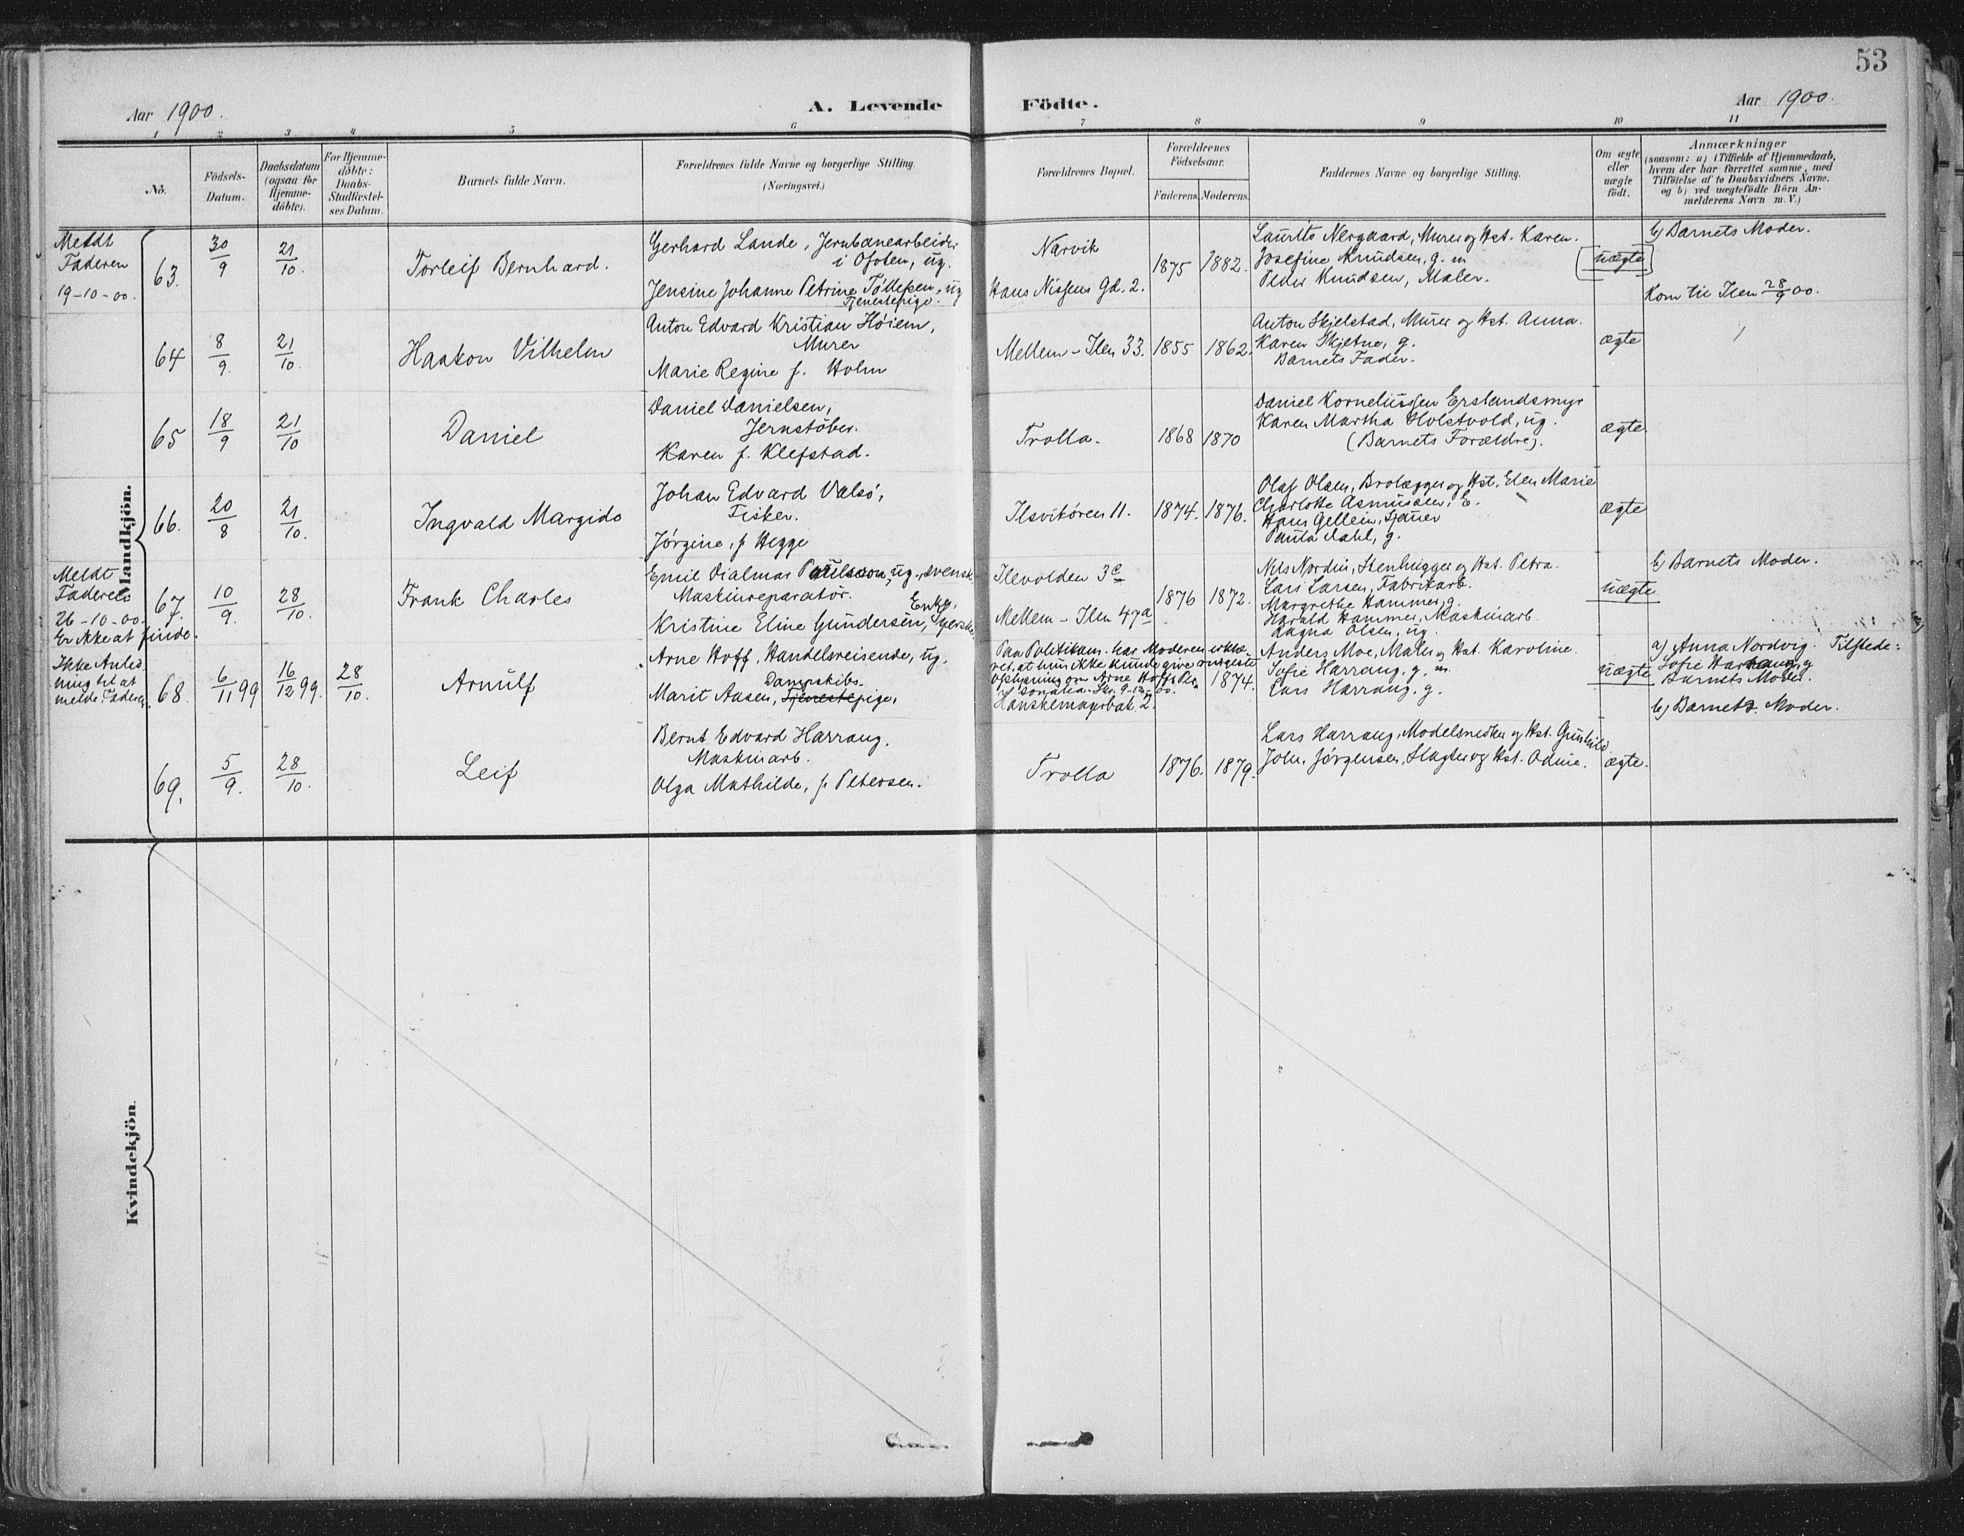 53
Aar 1900.
A. Levende Födte.
Aar 1900.
1 2 3 4 5 6 7 8 9 10 11
No.
Födsels-
Datum.
Daabsdatum
(ogsaa for
Hjemme-
döbte).
For Hjemme-
döbte:
Daabs-
Stadfæstel-
ses Datum.
Barnets fulde Navn.
Forældrenes fulde Navne og borgerlige Stilling.
(Næringsvei.)
Forældrenes Bopæl.
Forældrenes
Födselsaar.
Faderens. Moderens.
Faddernes Navne og borgerlige Stilling.
Om ægte
eller
uægte
födt.
Anmærkninger
(saasom: a) i Tilfælde af Hjemmedaab,
hvem der har forrettet samme, med
Tilföielse af to Daabsvidners Navne,
og b) ved uægtefödte Börn An-
melderens Navn m. V.)
Mandkjön.
Meldt
Faderen
19-10-00.
63.
30/9
21/10.
Torleif Bernhard.
Gerhard Lande, Jernbanearbeider
i Ofoten, ug.
Jensine Johanne Petrine Töllefsen, ug
Tjenestepige.
Narvik
Hans Nissens Gd. 2.
1875 1882.
Laurits Nergaard, Murer og Hst. Karen.
Josefine Knudsen, g. m
Peder Knudsen, Maler.
uægte
b) Barnets Moder.
Kom til Ilen 28/9 00.
64
8/9.
21/10.
Haakon Vilhelm
Anton Edvard Kristian Höiem,
Murer
Marie Regine f. Holm
Mellem-Ilen 33.
1855 1862.
Anton Skjelstad, Murer og Hst. Anna.
Karen Skjetne, g.
Barnets Fader.
ægte
65
18/9
21/10
Daniel
Daniel Danielsen,
Jernstöber.
Karen f. Klefstad.
Trolla.
1868 1870
Daniel Korneliussen Erslandsmyr
Karen Martha Holstvold, ug.
(Barnets Forældre).
ægte.
66.
20/8
21/10.
Ingvald Margido
Johan Edvard Valsö,
Fisker.
Jörgine, f Hegge
Ilsvikören 11.
1874. 1876.
Olaf Olsen, Brolægger og Hst. Elen Marie
Charlotte Asmussen, E.
Hans Gellein, Tjener
Paula Dahl, g.
ægte
Meldt
Faderen
26-10-00.
Er ikke at finde.
67.
10/9.
28/10.
Frank Charles
Emil Dialmar Paulsson, ug., svensk
Maskinreparatör.
Enke,
Kristine Eline Gundersen, norske
Ilevolden 3c
Mellem-Ilen 47a
1876 1872.
Nils Nordin, Stenhugger og Hst. Petra.
Lars Larsen, Fabrikarb.
Margrethe Hammer, g.
Harald Hammer, Maskinarb.
Ragna Olsen, ug.
uægte
b) Barnets Moder.
Ikke Anled
ning til at
melde Faderen.
68.
6/11 99
16/12 99.
28/10.
Arnulf
Arne Hoff, Handelsreisende, ug.
Dampskibs-
Marit Aasen, Tjenestepige,
Paa Politikam. har Moderen erklæ-
ret, at hun ikke kunde give nogen
Oplysning om Arne Hoffs Per-
sonalia. Skr. 9-10-00.
Hanskemagerbak. 2.
1874.
Anders Moe, Maler og Hst. Karoline.
Sofie Harrang, g. m.
Lars Harrang, g.
uægte
a) Anna Nordvig. Tilstede:
Sofie Harrang, g
Barnets Moder.
b) Barnets Moder.
69.
5/9.
28/10.
Leif
Bernt Edvard Harrang.
Maskinarb.
Olga Mathilde, f. Petersen.
Trolla
1876. 1879.
Lars Harrang, Modelsnedker og Hst. Gunhild
John Jörgensen, Slagter og Hst. Odine.
ægte.
Kvindekjön.